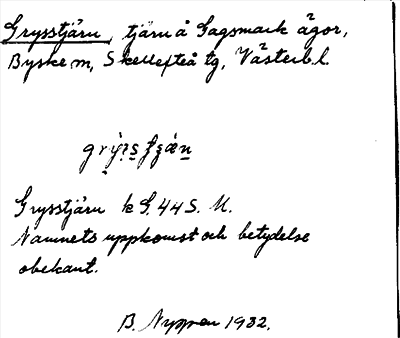 Grysstjärn, tjärn å Gagsmark ägor,
Byske m, Skellefteå tg, Västerb. l.
Grysstjärn k G. 44 S. U.
Namnets uppkomst och betydelse
obekant.
B. Nyman 1932.